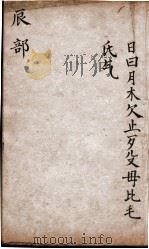 日曰月木欠止歹殳毋比毛
氏气
辰部